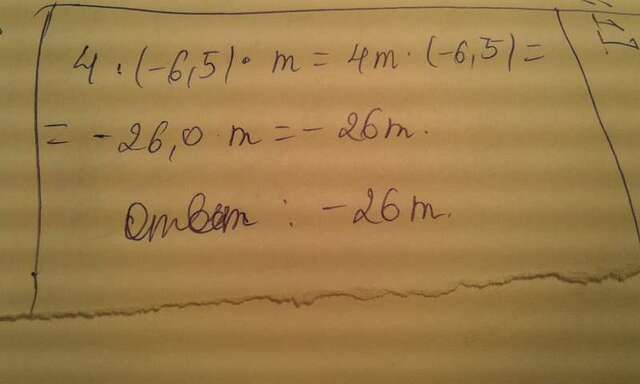 4 · (-6,5) · m = 4m · (-6,5) =
= -26,0 · m = -26m.
Ответ : -26m.